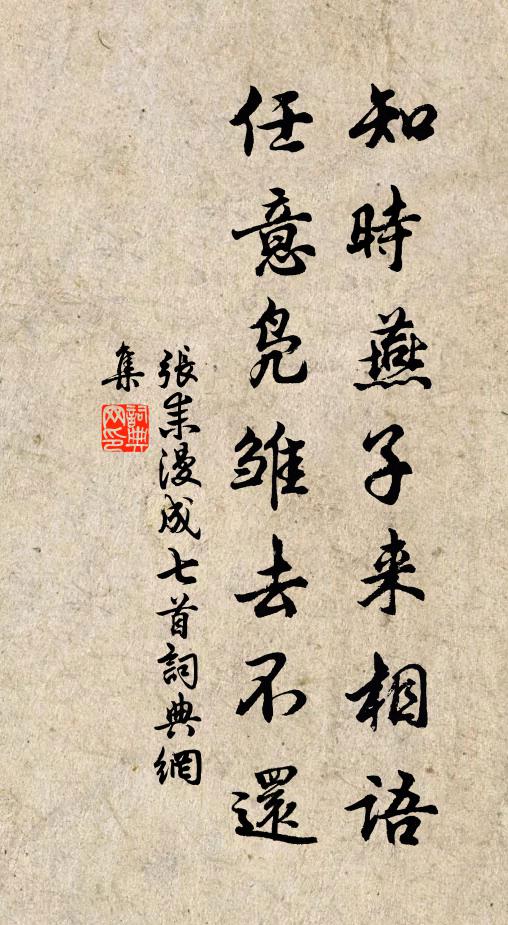 知時燕子来相語
任意凫雏去不還
張耒漫成七首詞典網
集
詞典
网印